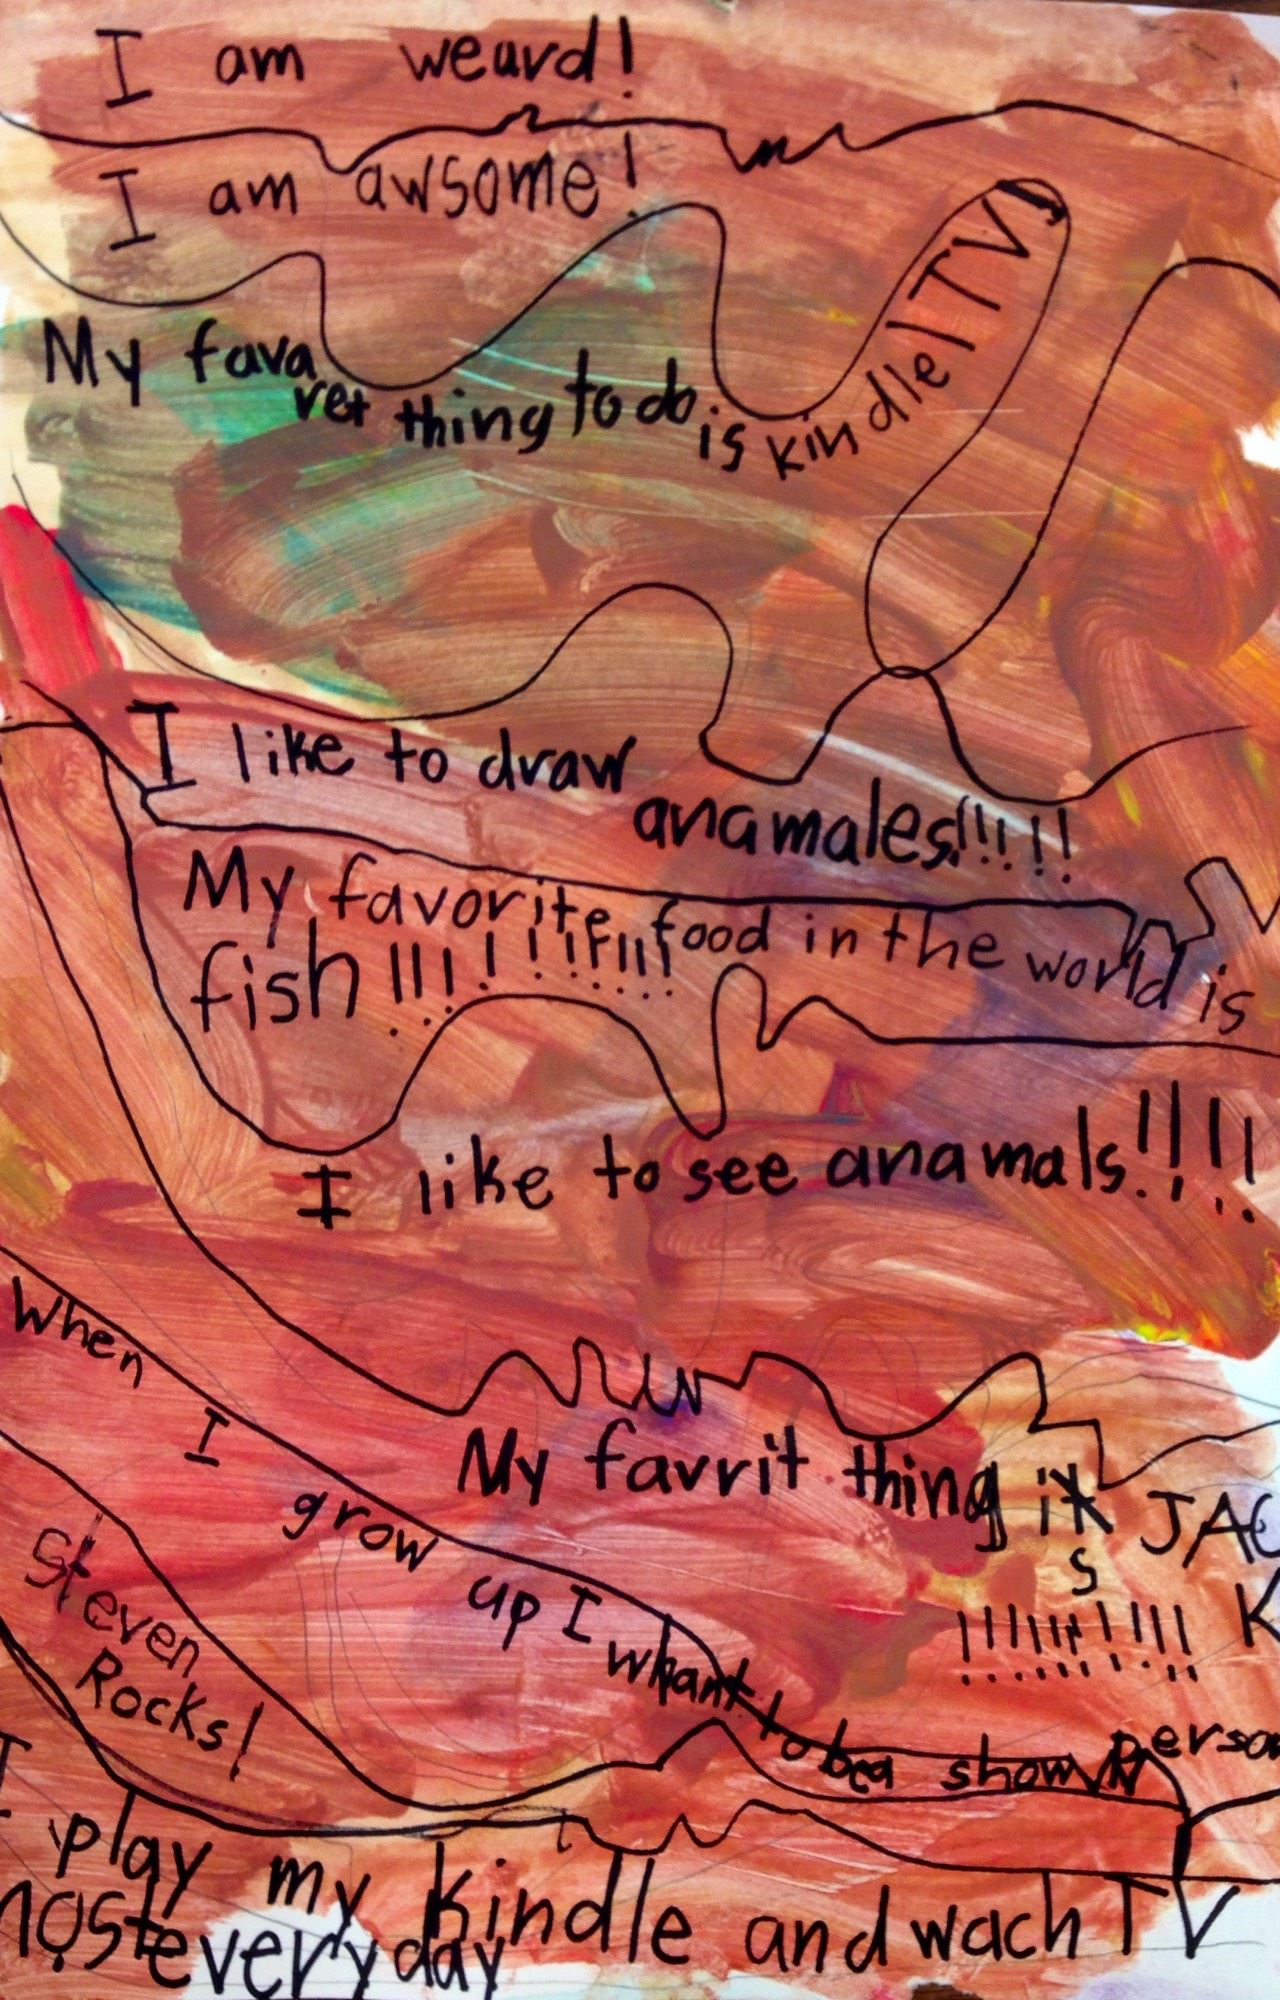 I am weard!
I am awsome!
My favaret thing to do is kindle/TV!
I like to draw anamales!!!!!
My favorite food in the world is
fish!!!!!!!!!!!
I like to see anamals!!!!
My favrit thing is JACK
!!!!!!!!!!!
When I grow up I whant to be a show person
Steven
Rocks!
I play my kindle and wach TV
most every day